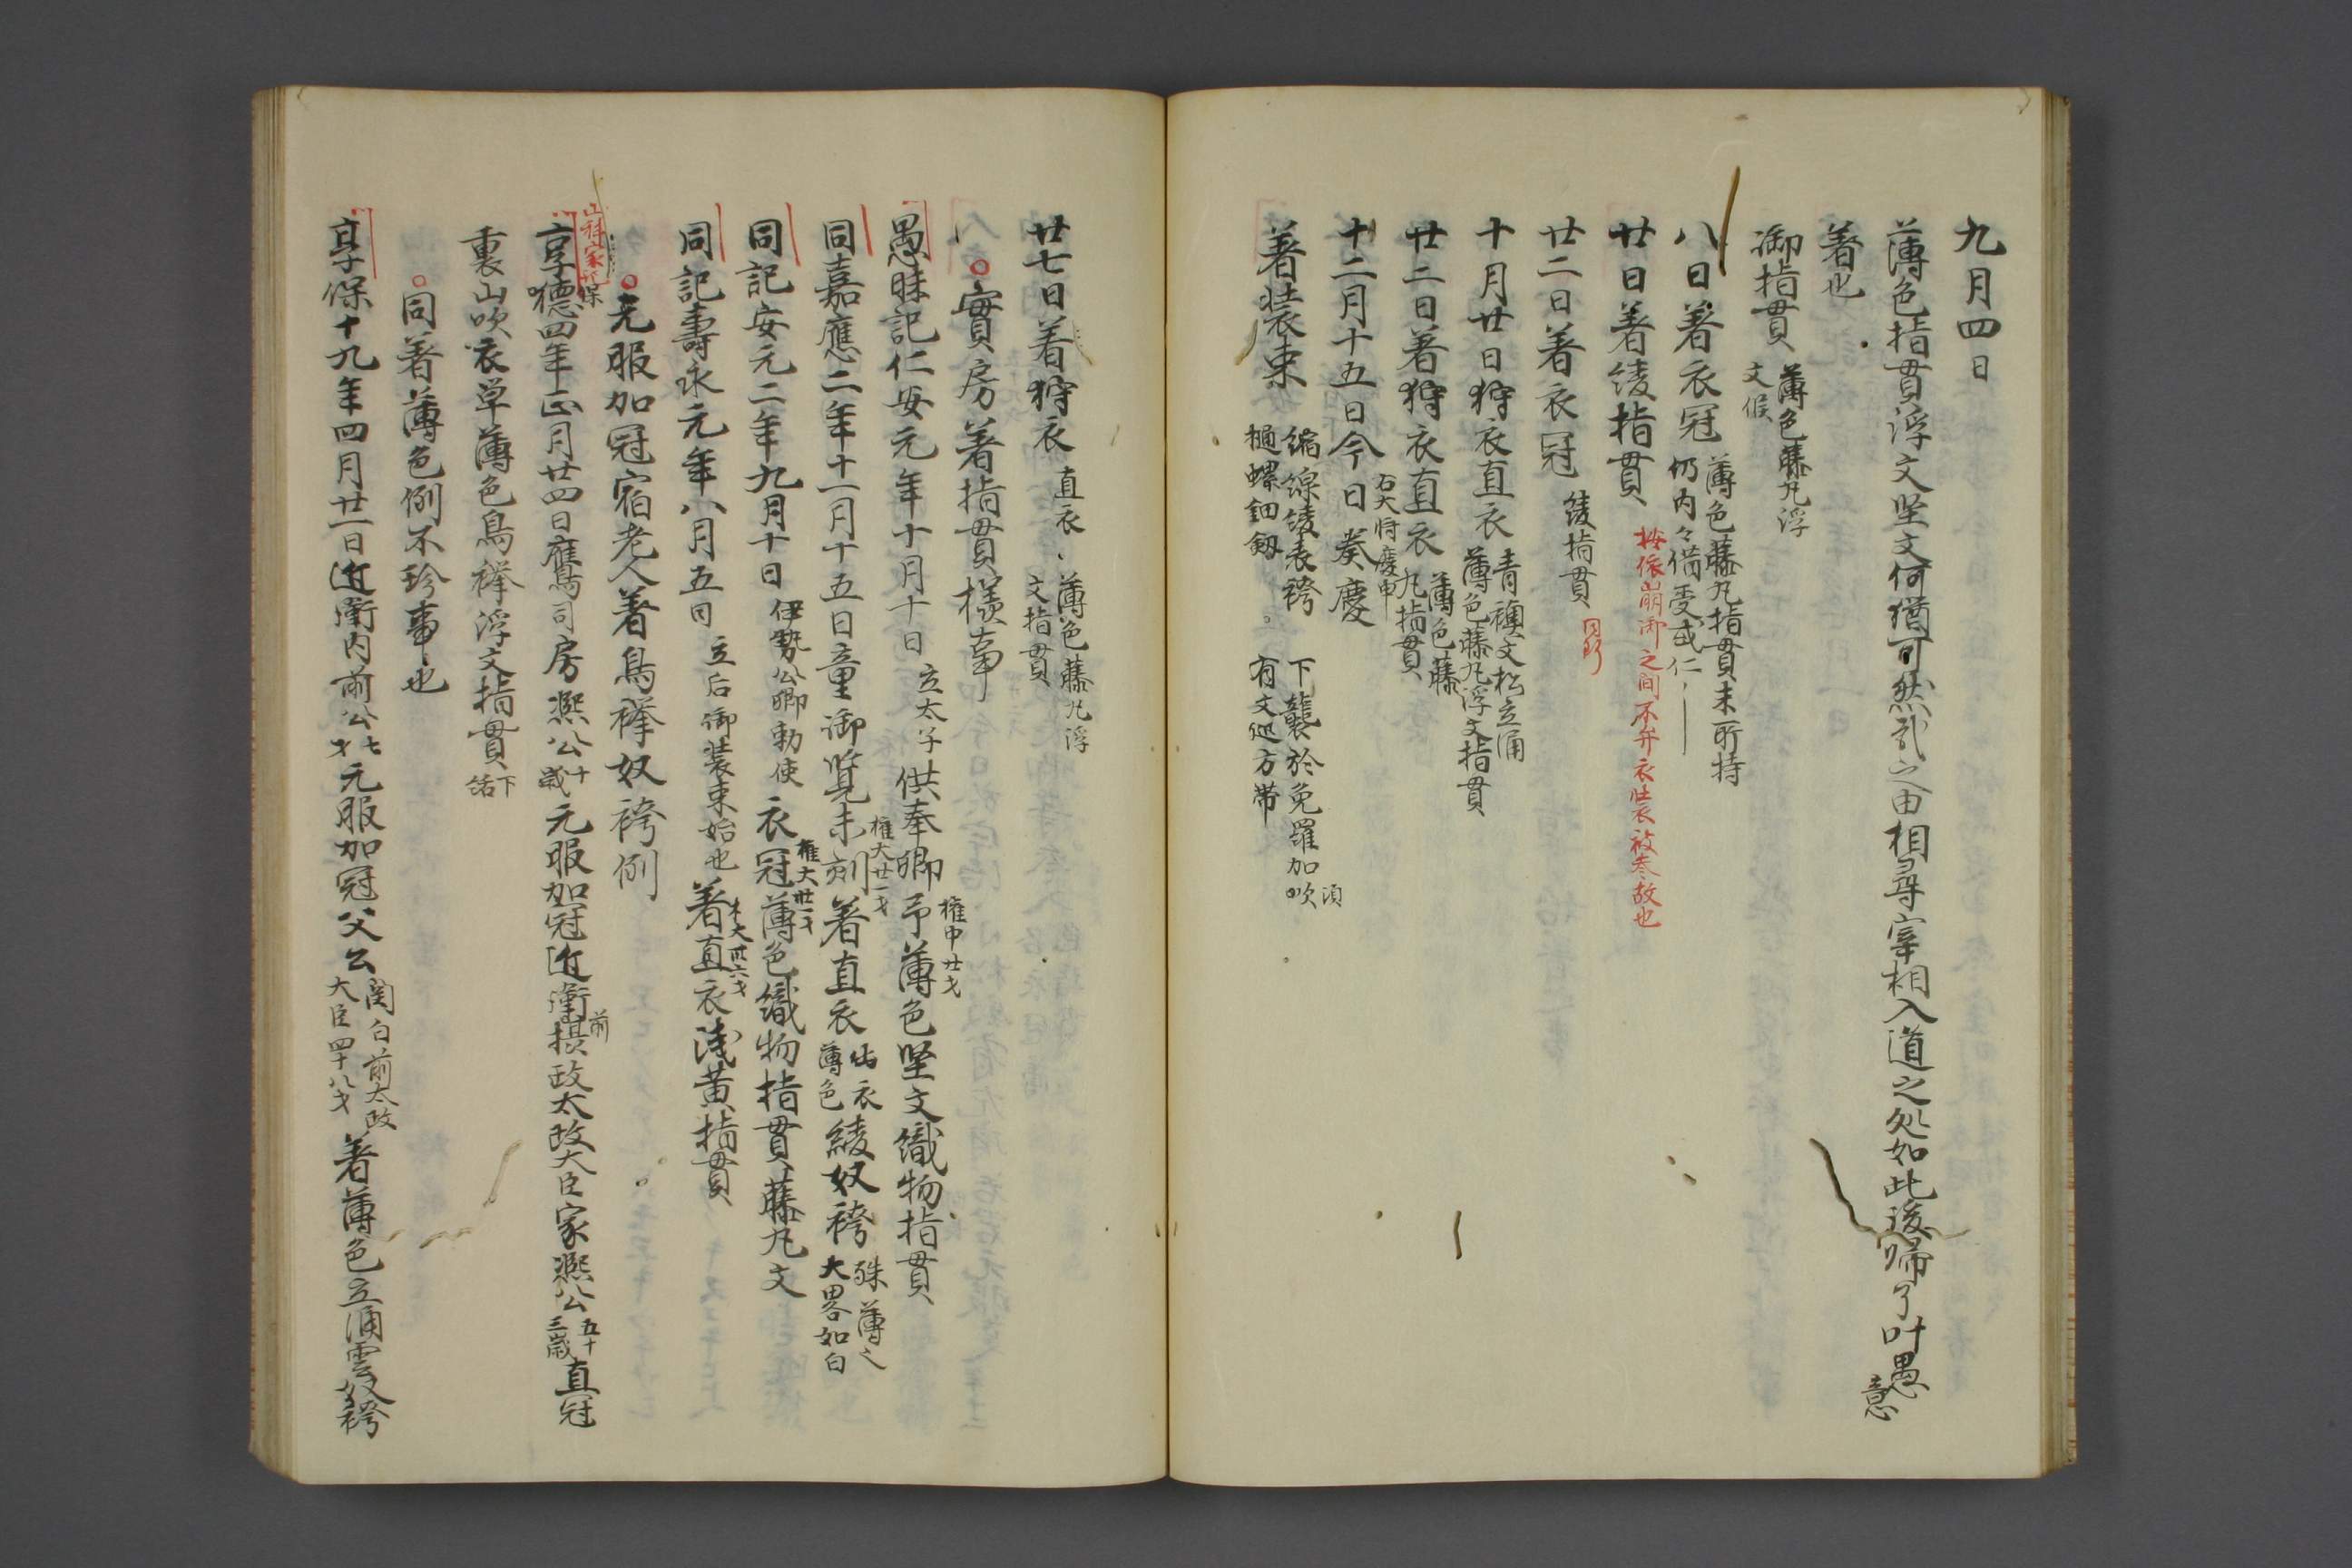 九月四日
薄色指貫浮文堅文何猶可然哉之由相尋宰相入道之処如此後帰了叶愚意
着也
御指貫 薄色藤丸浮
文候
八日著衣冠 薄色藤丸指貫未所持
仍内々借受或仁
廿日著綾指貫 按依崩御之間不弁衣裝被参故也
廿二日著衣冠 綾指貫
十月廿日狩衣直衣 青襖文松立涌
薄色藤丸浮文指貫
廿二日著狩衣直衣 薄色藤
丸指貫
十二月十五日今日奏慶 右大将慶申
著装束 縮線綾表袴 下襲於免羅加吹 須
樋螺鈿釼 有文巡方帯
廿七日着狩衣 直衣 薄色藤丸浮
文指貫
實房著指貫樣事
愚昧記仁安元年十月十日 立太子 供奉卿 権中廿才 予薄色堅文織物指貫
同嘉應二年十一月十五日童御覧未刻 権大廿一才 著直衣 出衣
薄色 綾奴袴 殊薄之
大畧如白
同記安元二年九月十日 伊勢公卿勅使 衣冠 権大卅一才 薄色織物指貫藤丸文
同記壽永元年八月五日 立后御装束始也 著直衣浅黄指貫
元服加冠宿老人著鳥襷奴袴例
山科家記
享徳 保 四年正月廿四日鷹司房熈公 十
歳 元服加冠近衛 前 摂政太政大臣家熈公 五十
三歳 直冠
裏山吹衣単薄色鳥襷浮文指貫 下
括
同著薄色例不珍事也
享保十九年四月廿一日近衛内前公 七
才 元服加冠父公 関白前太政
大臣四十八才 著薄色立涌雲奴袴